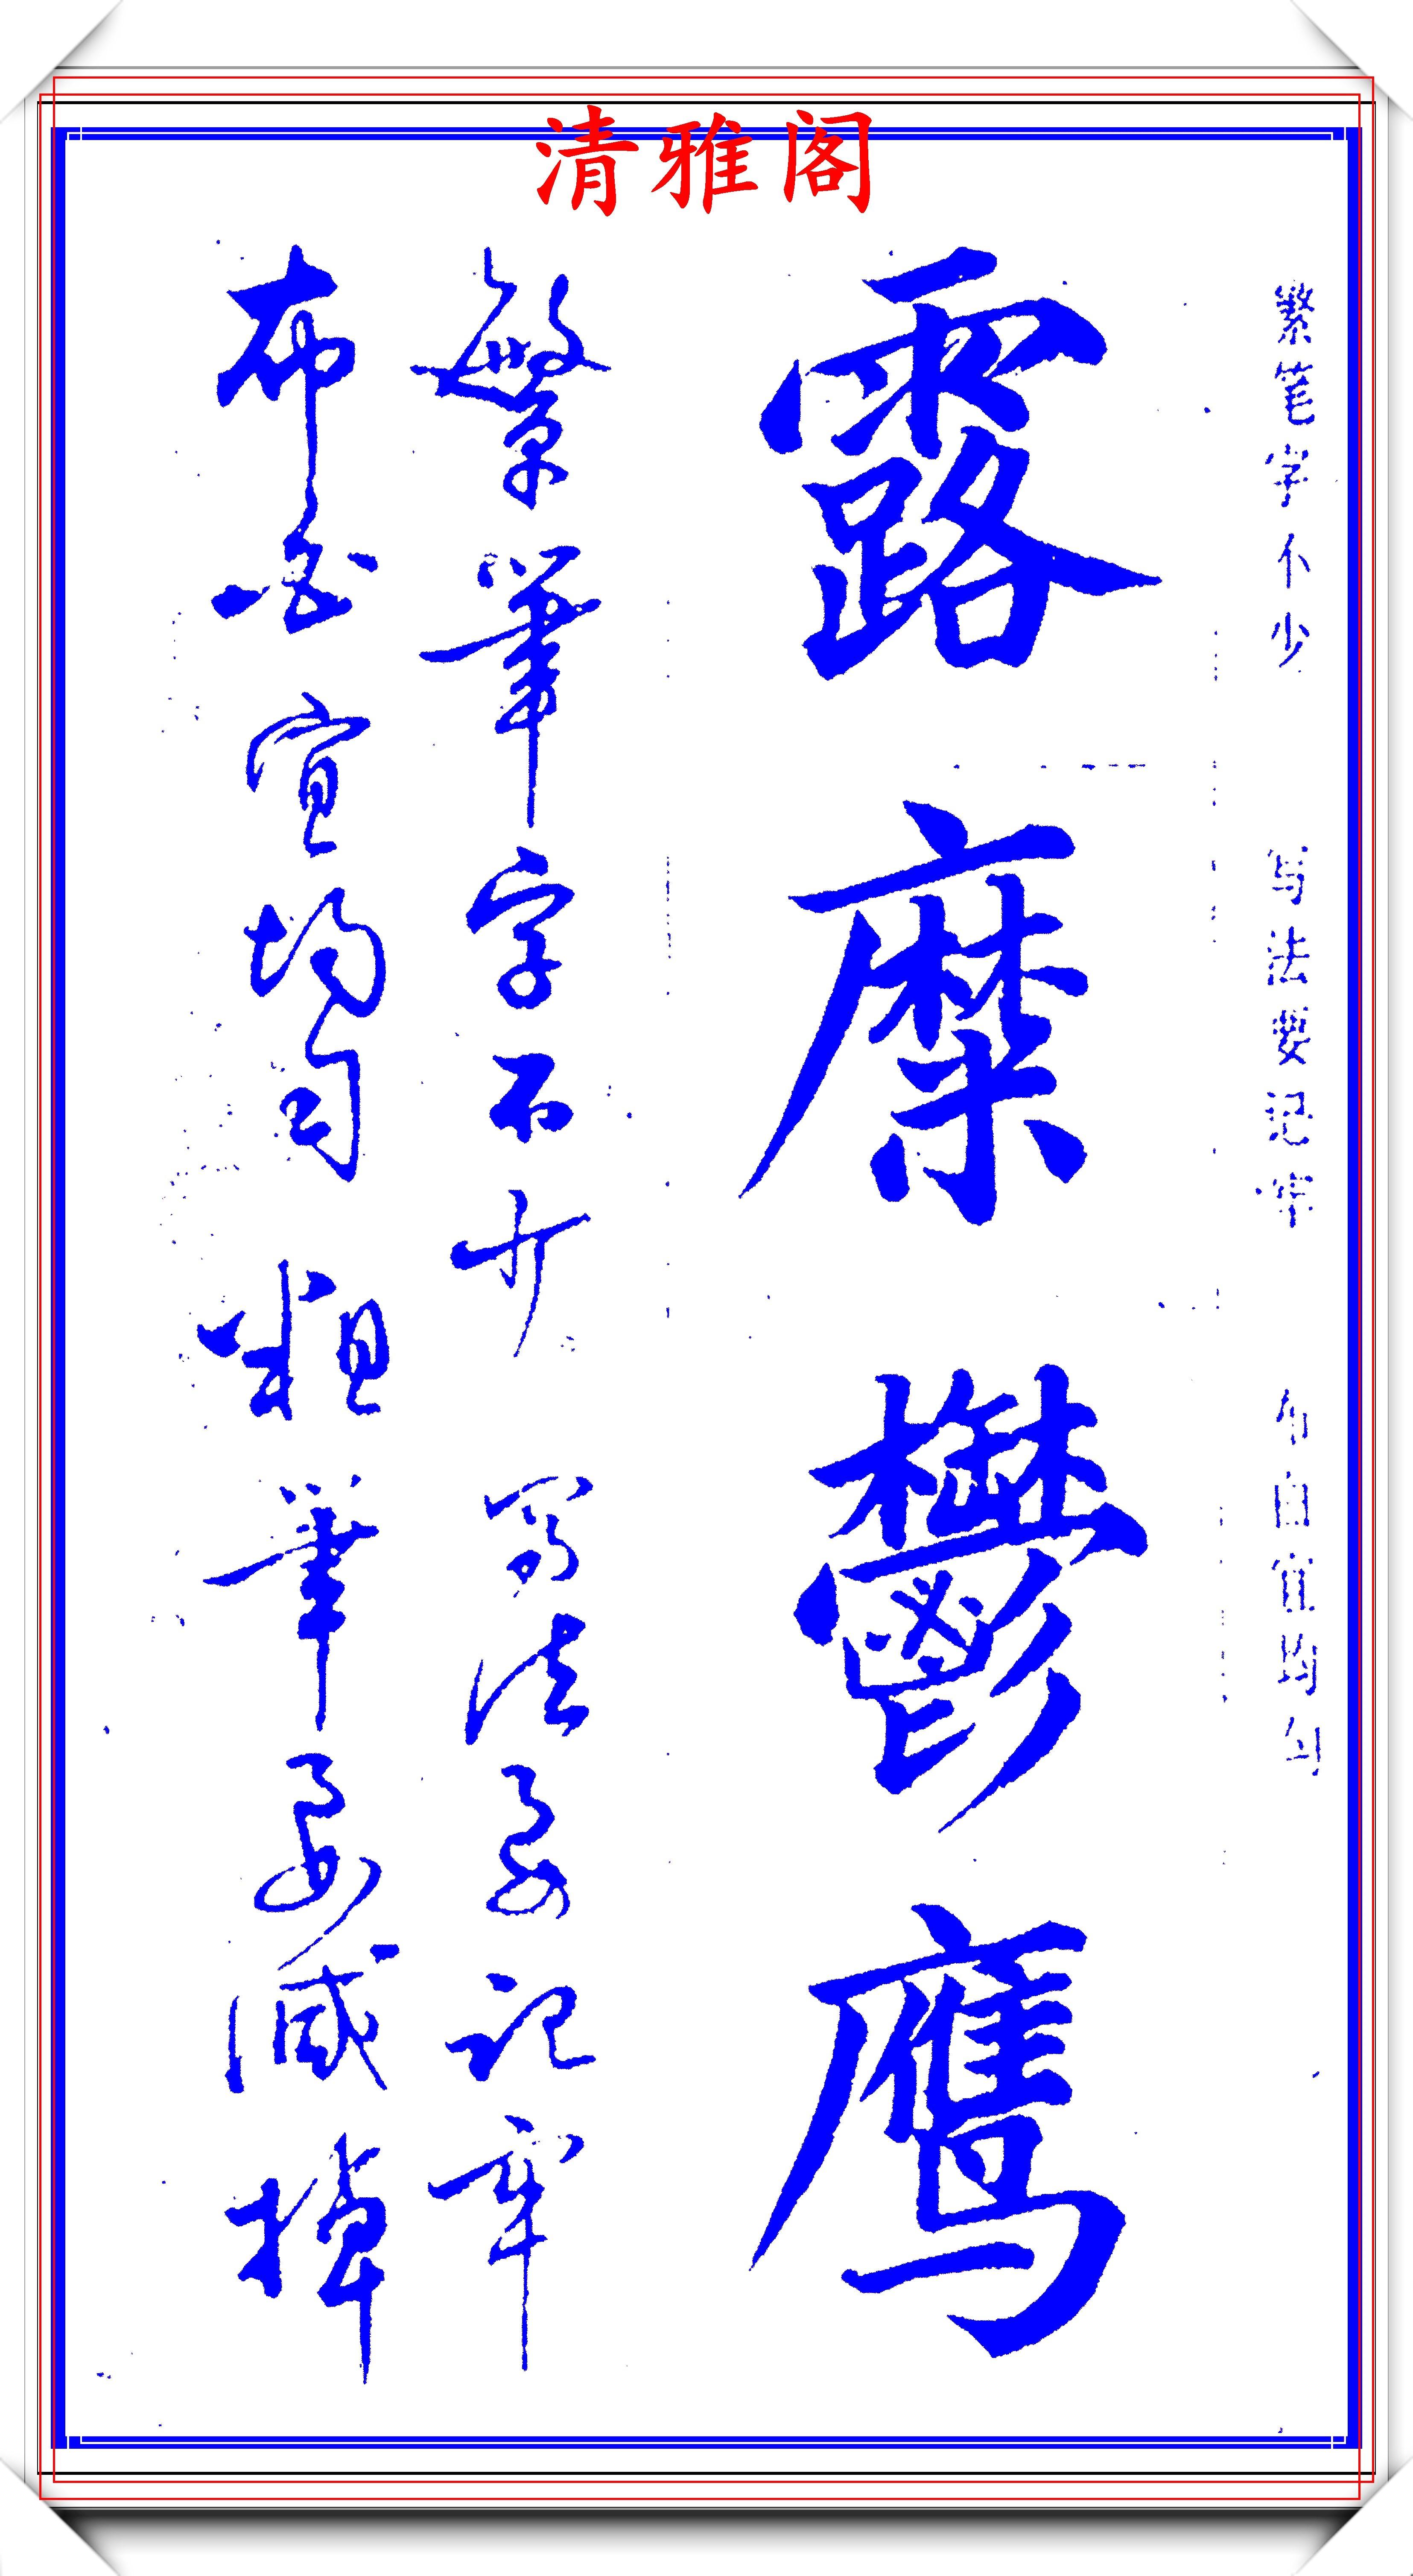 清雅阁
繁笔字不少 写法要记牢 布白宜均匀
露糜鬱鹰
繁筆字不少 写法要记牢
布白宜均匀 粗筆要减掉